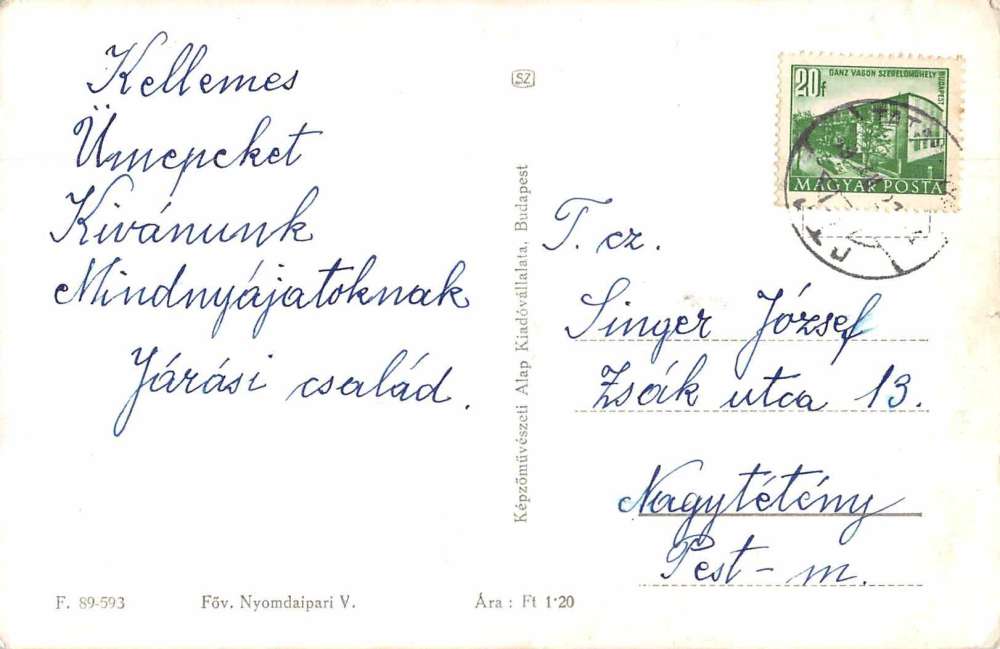 Kellemes
Ünnepeket
Kivánunk
Mindnyájatoknak
Járási család.
F. 89-593 Főv. Nyomdaipari V. Ára : Ft 1·20
SZ
Képzőművészeti Alap Kiadóvállalata, Budapest
20f
GANZ VAGON SZERELŐMŰHELY
BUDAPEST
MAGYAR POSTA
T. cz.
Singer József
Zsák utca 13.
Nagytétény
Pest - m.